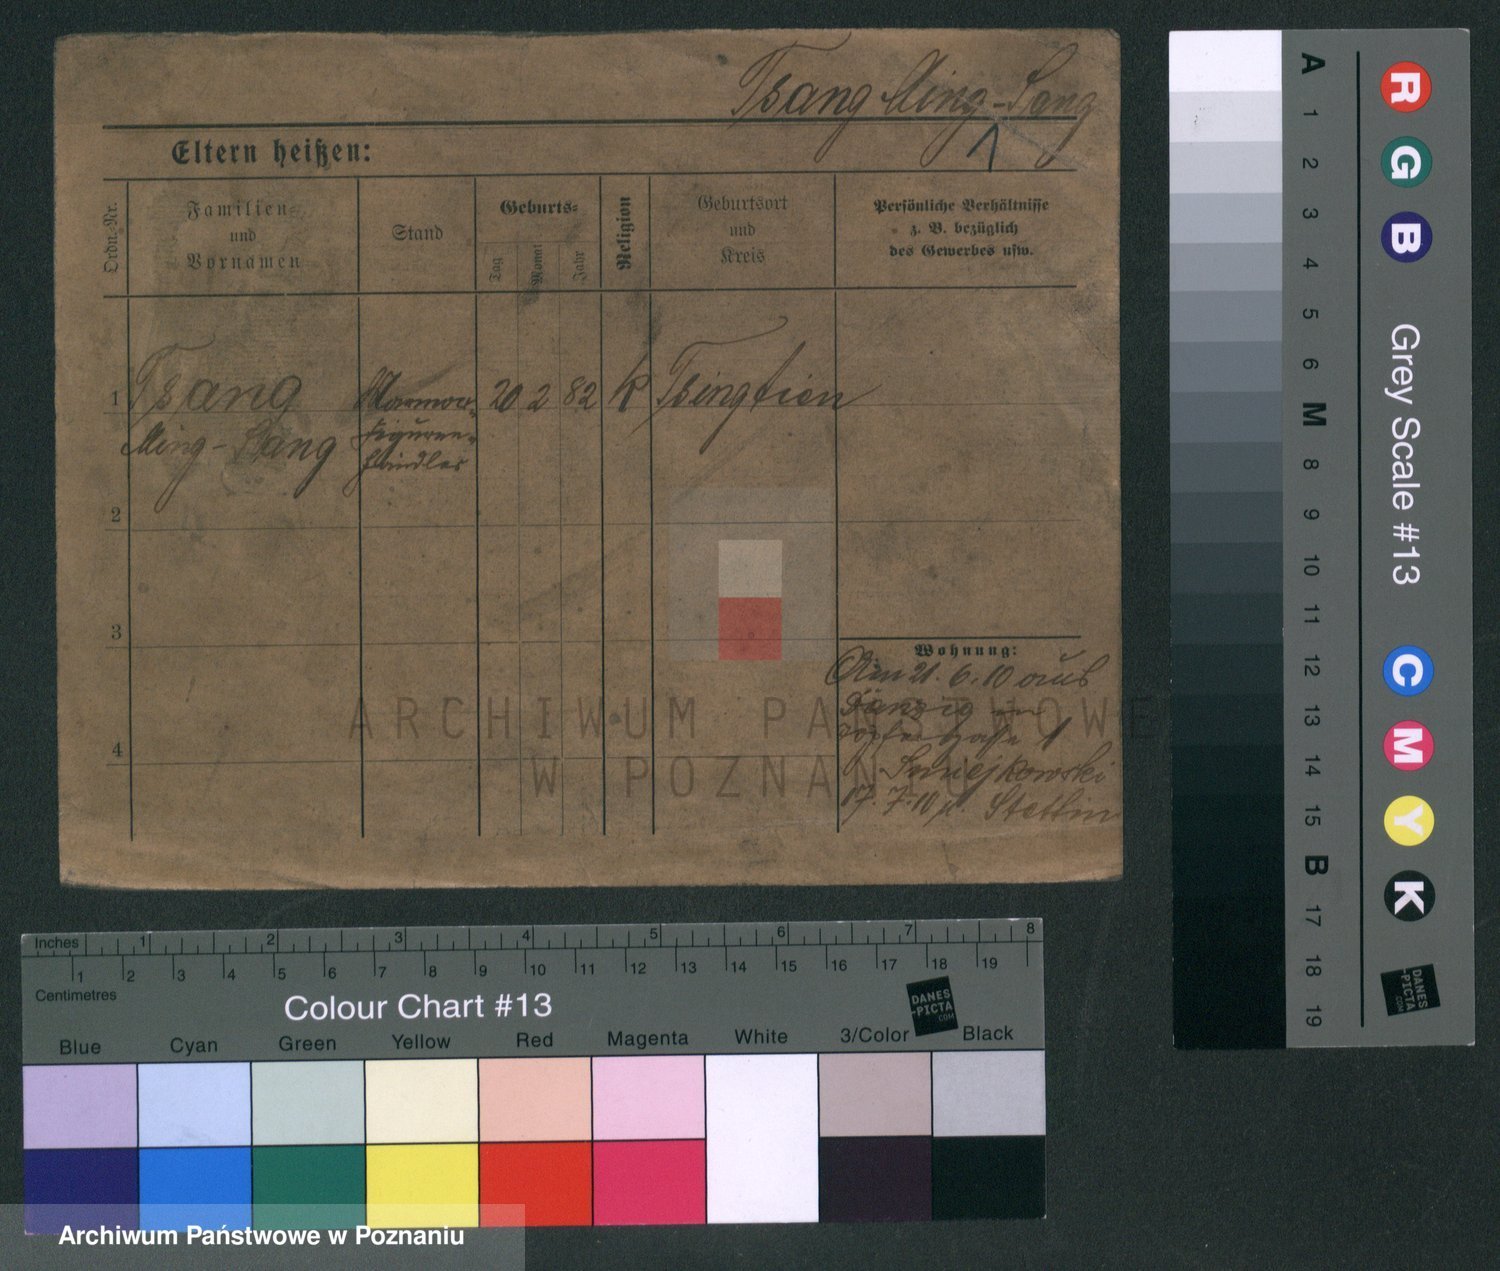 Tsang Ming-Sang
Eltern heißen:
Ordn.-Nr.
Familien-
und
Vornamen
Stand
Geburts-
Tag
Monat
Jahr
Religion
Geburtsort
und
Kreis
Persönliche Verhältnisse
z. B. bezüglich
des Gewerbes usw.
1 Tsang Marmor- 20 2 82 k Tsingtien
Ming-Sang figuren-
händler
2
3
4
Wohnung:
Am 21. 6. 10 aus
Danzig
gasse 1
b. Smiejkowski
17. 7. 10 n. Stettin
ARCHIWUM PAŃSTWOWE
W POZNANIU
A 1 2 3 4 5 6 M 8 9 10 11 12 13 14 15 B 17 18 19
R G B Grey Scale #13 C M Y K
DANES
-PICTA
.COM
Inches 1 2 3 4 5 6 7 8
1 2 3 4 5 6 7 8 9 10 11 12 13 14 15 16 17 18 19
Centimetres
Colour Chart #13
DANES
-PICTA
.COM
Blue Cyan Green Yellow Red Magenta White 3/Color Black
Archiwum Państwowe w Poznaniu